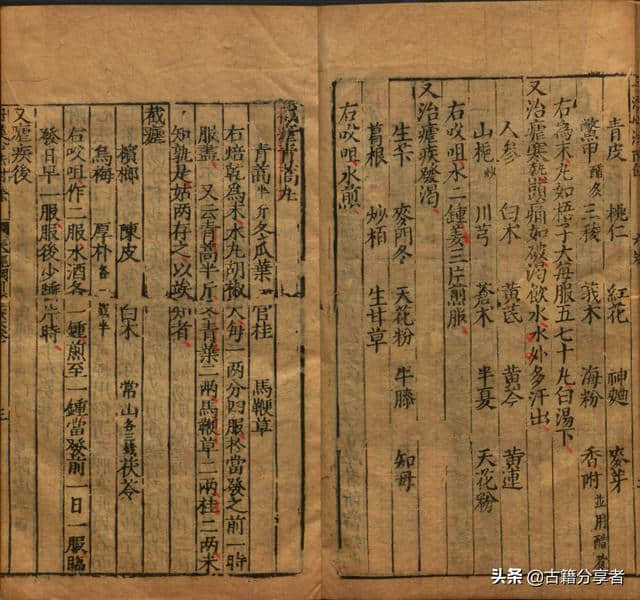 青皮 桃仁 紅花 神麯 麥芽
鱉甲 醋炙 三稜 莪木 海粉 香附 並用醋煮
右爲末丸如梧子大每服五七十丸白湯下
又治瘧寒熱頭痛如破渴飲水水外多汗出
人參 白木 黃芪 黃芩 黃連
山梔 炒 川芎 蒼木 半夏 天花粉
右㕮咀水二鍾姜三片煎服
又治瘧疾發渴
生芐 麥門冬 天花粉 牛膝 知母
葛根 炒栢 生甘草
右㕮咀水煎
截瘧青蒿丸
青蒿 半斤 冬瓜葉 官桂 馬鞭草
右焙乾爲末水丸胡椒大每一兩分四服於當發之前一時
服盡 又云青蒿半斤冬青葉二兩馬鞭草二兩桂二兩未
知孰是姑兩存之以竢知者
截瘧
檳榔 陳皮 白木 常山 各三錢 茯苓
烏梅 厚朴 各一錢半
右㕮咀作二服水酒各一鍾煎至一鍾當發前一日一服臨
發日早一服服後少睡片時
又瘧疾後
頭条 古籍分享者